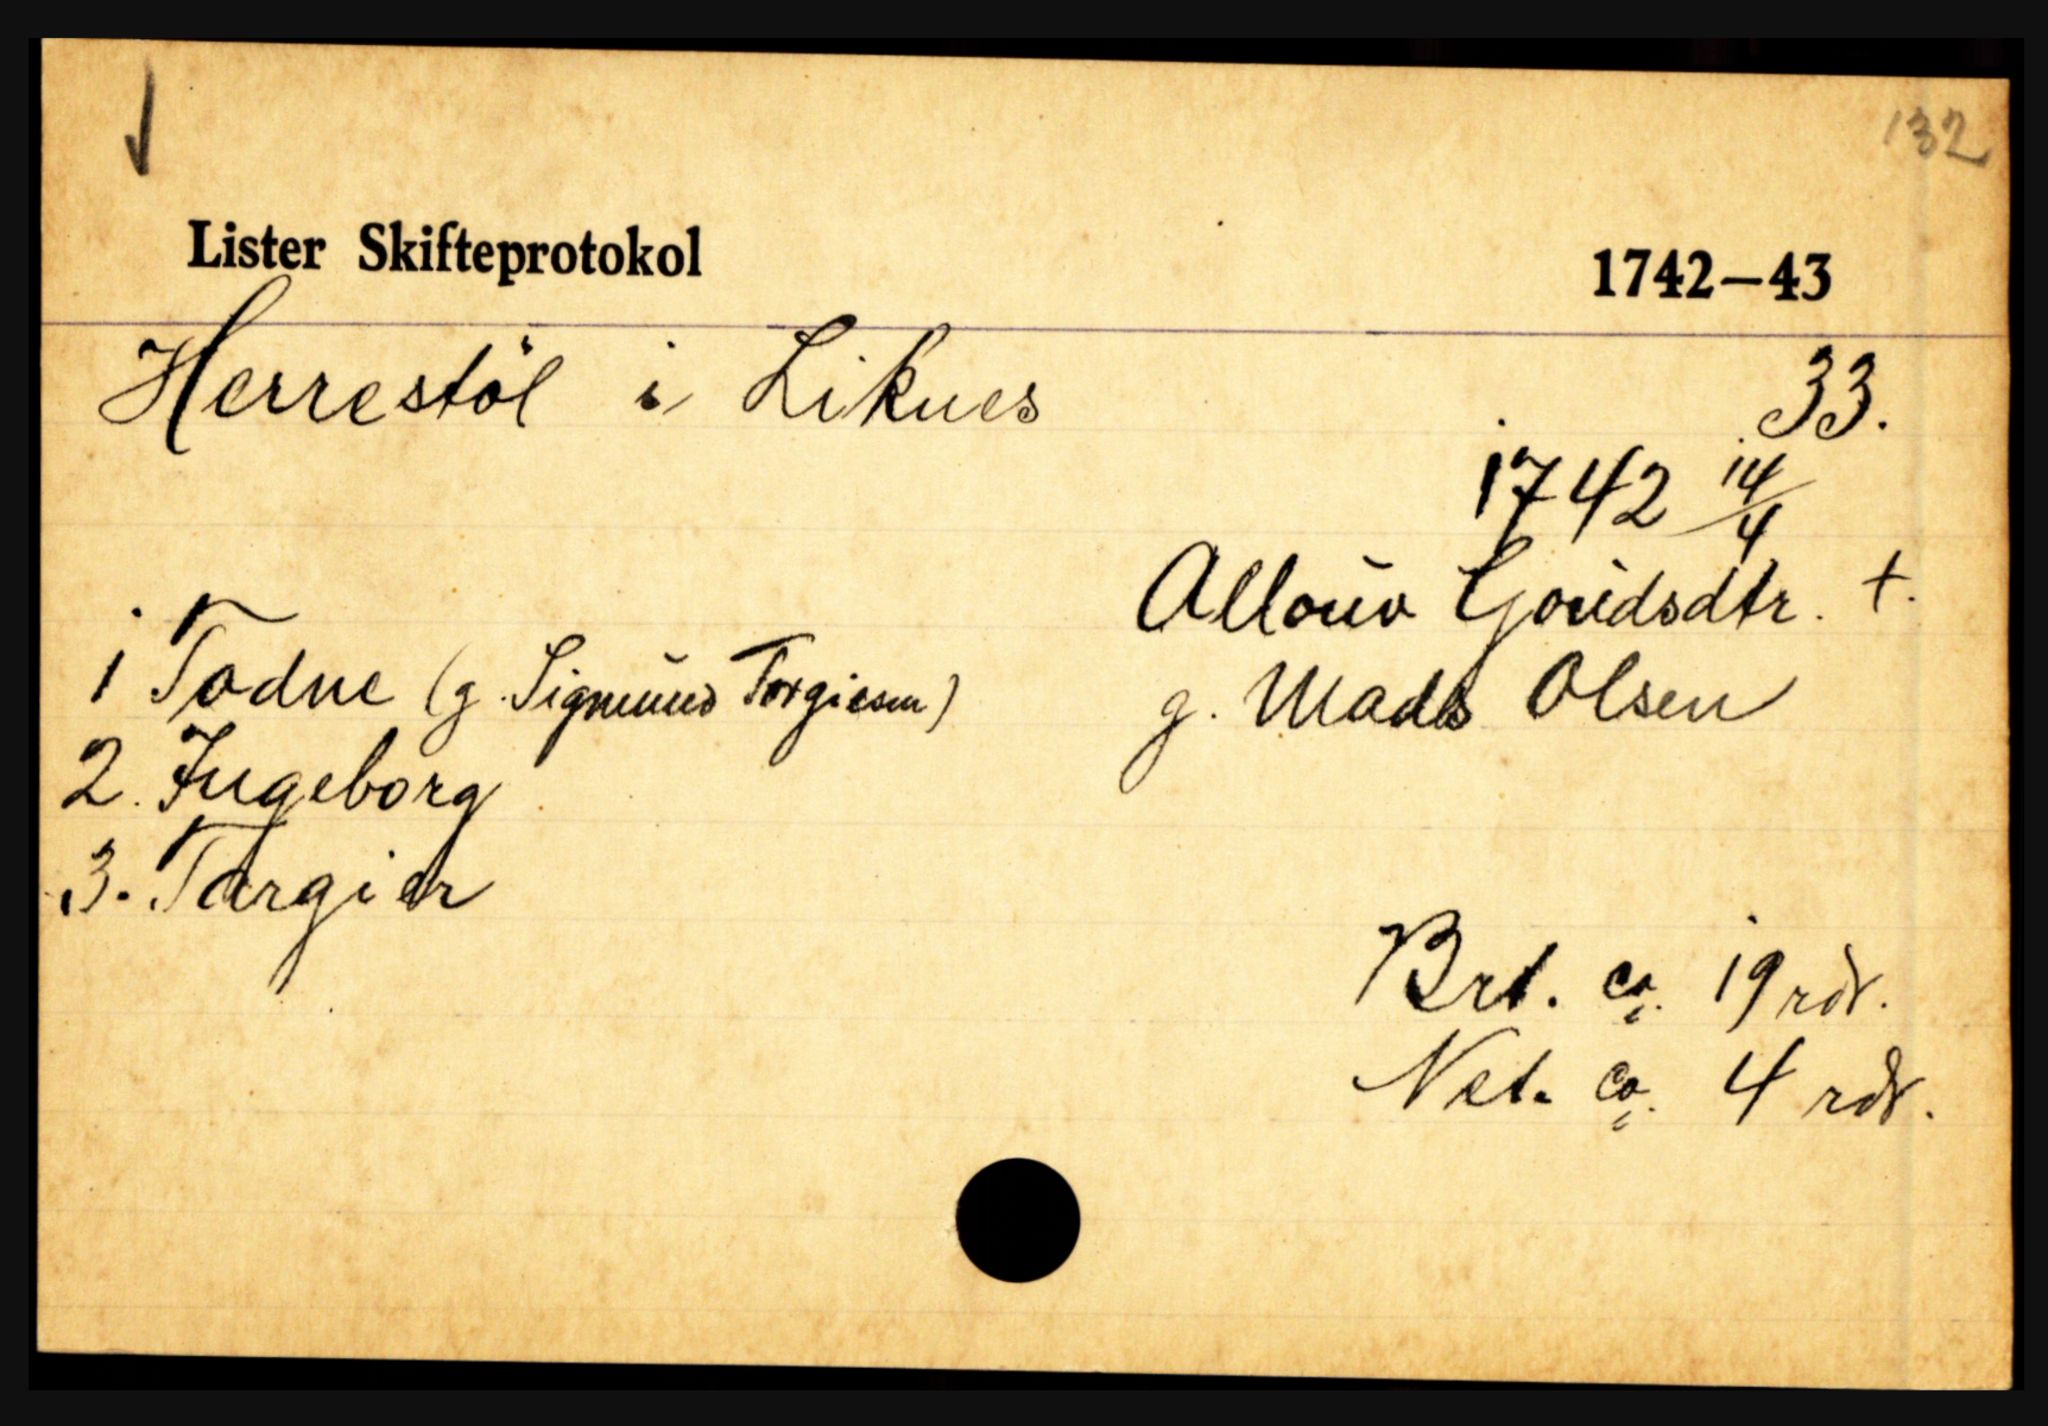 132
Lister Skifteprotokol 1742–43
Herrestöl i Liknes 33.
1742 14/4
Allouv Goudsdtr. +.
1 Todne (g. Sigmund Torgiesen) g. Mads Olsen
2. Ingeborg
3. Targier
Brt. ca. 19 rdr.
Net. ca. 4 rdr.